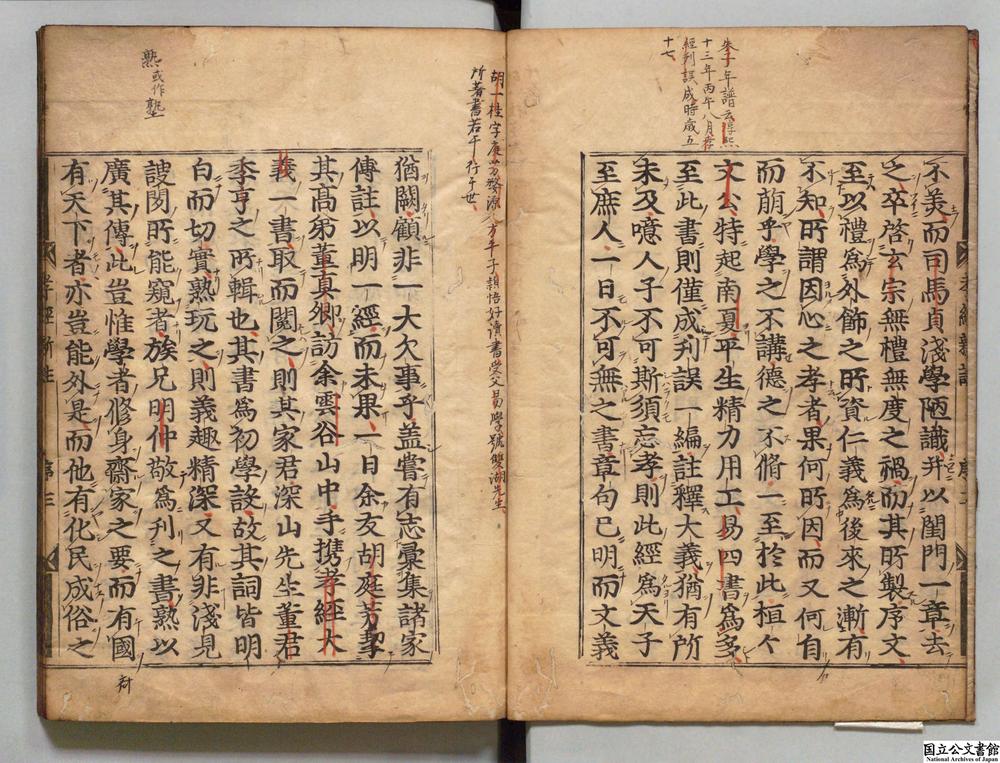 朱子年譜云淳熙
十三年丙午八月孝
經刋誤成時歳五
十七
不美而司馬貞淺學陋識并以閨門一章去
之卒啓玄宗無禮無度之禍而其所製序文
至以禮爲外飾之所資仁義爲後來之漸有
不知所謂因心之孝者果何所因而又何自
而崩乎學之不講德之不脩一至於此桓〻
文公特起南夏平生精力用工易四書爲多
至此書則僅成刋誤一編註釋大義猶有所
未及噫人子不可斯須忘孝則此經爲天子
至庶人一日不可無之書章句已明而文義
孝經新註
序二
胡一桂字庭芳婺源人方平子穎悟好讀書受父易學號雙湖先生
所著書若干行于世
猶闕顧非一大欠事乎蓋嘗有志彙集諸家
傳註以明一經而未果一日余友胡庭芳挈
其高弟董真卿訪余雲谷山中手携孝經大
義一書取而閲之則其家君深山先生董君
季亨之所輯也其書爲初學設故其詞皆明
白而切實熟玩之則義趣精深又有非淺見
謏聞所能窺者族兄明仲敬爲刋之書熟以
廣其傳此豈惟學者修身齊家之要而有國
有天下者亦豈能外是而他有化民成俗之
熟或作塾
孝經新註
序三
国立公文書館
National Archives of Japan